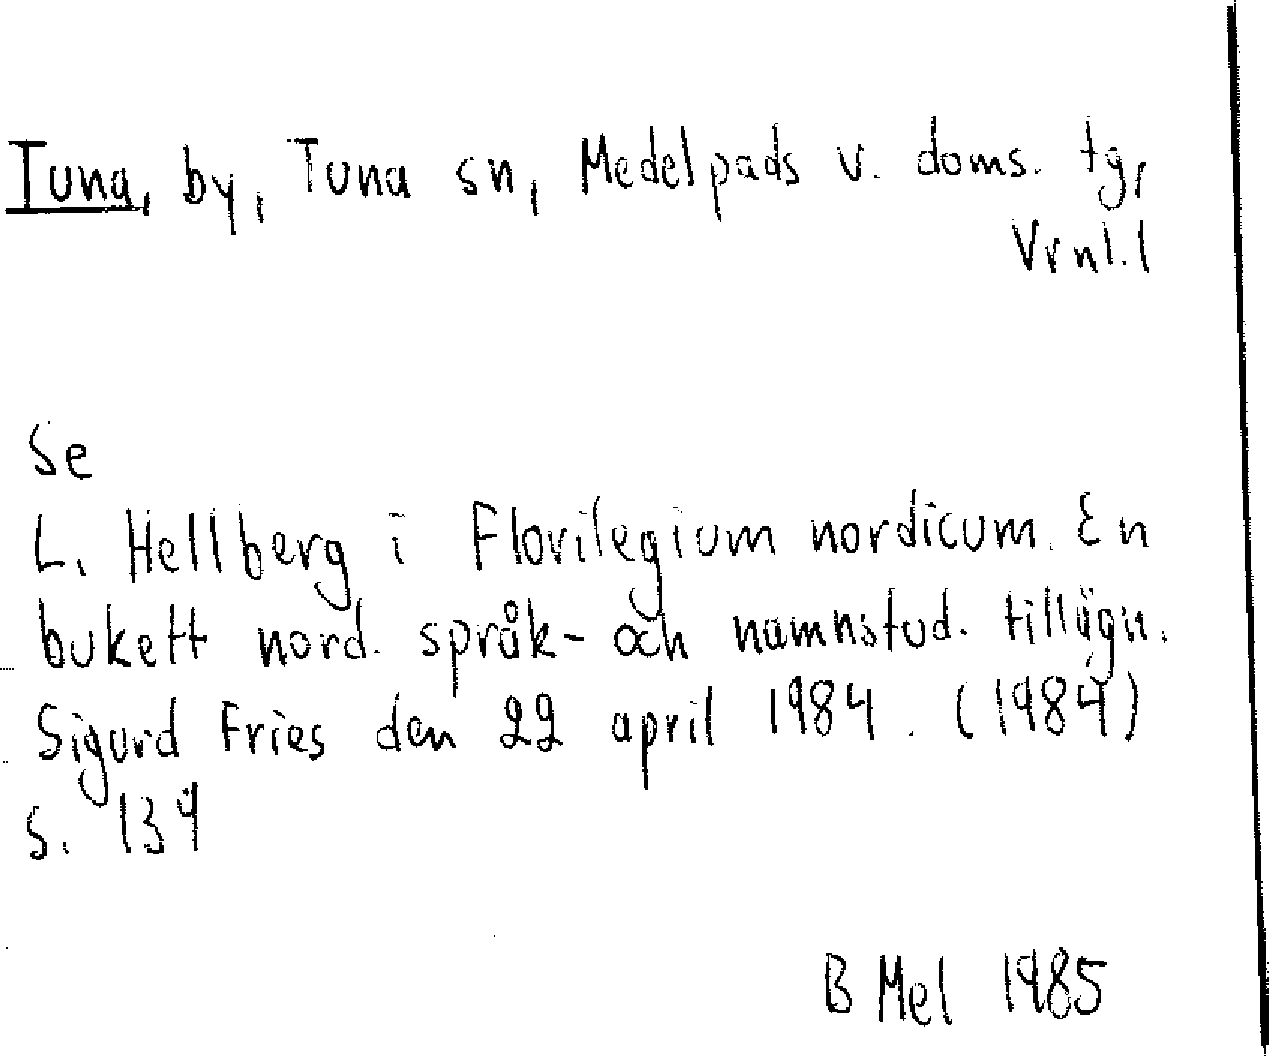 Tuna, by, Tuna sn, Medelpads v. doms. tg,
Vrnl.l
Se
L. Hellberg i Florilegium nordicum. En
bukett nord. språk- och namnstud. tillägn.
Sigurd Fries den 22 april 1984. (1984)
s. 134
B Mel 1985